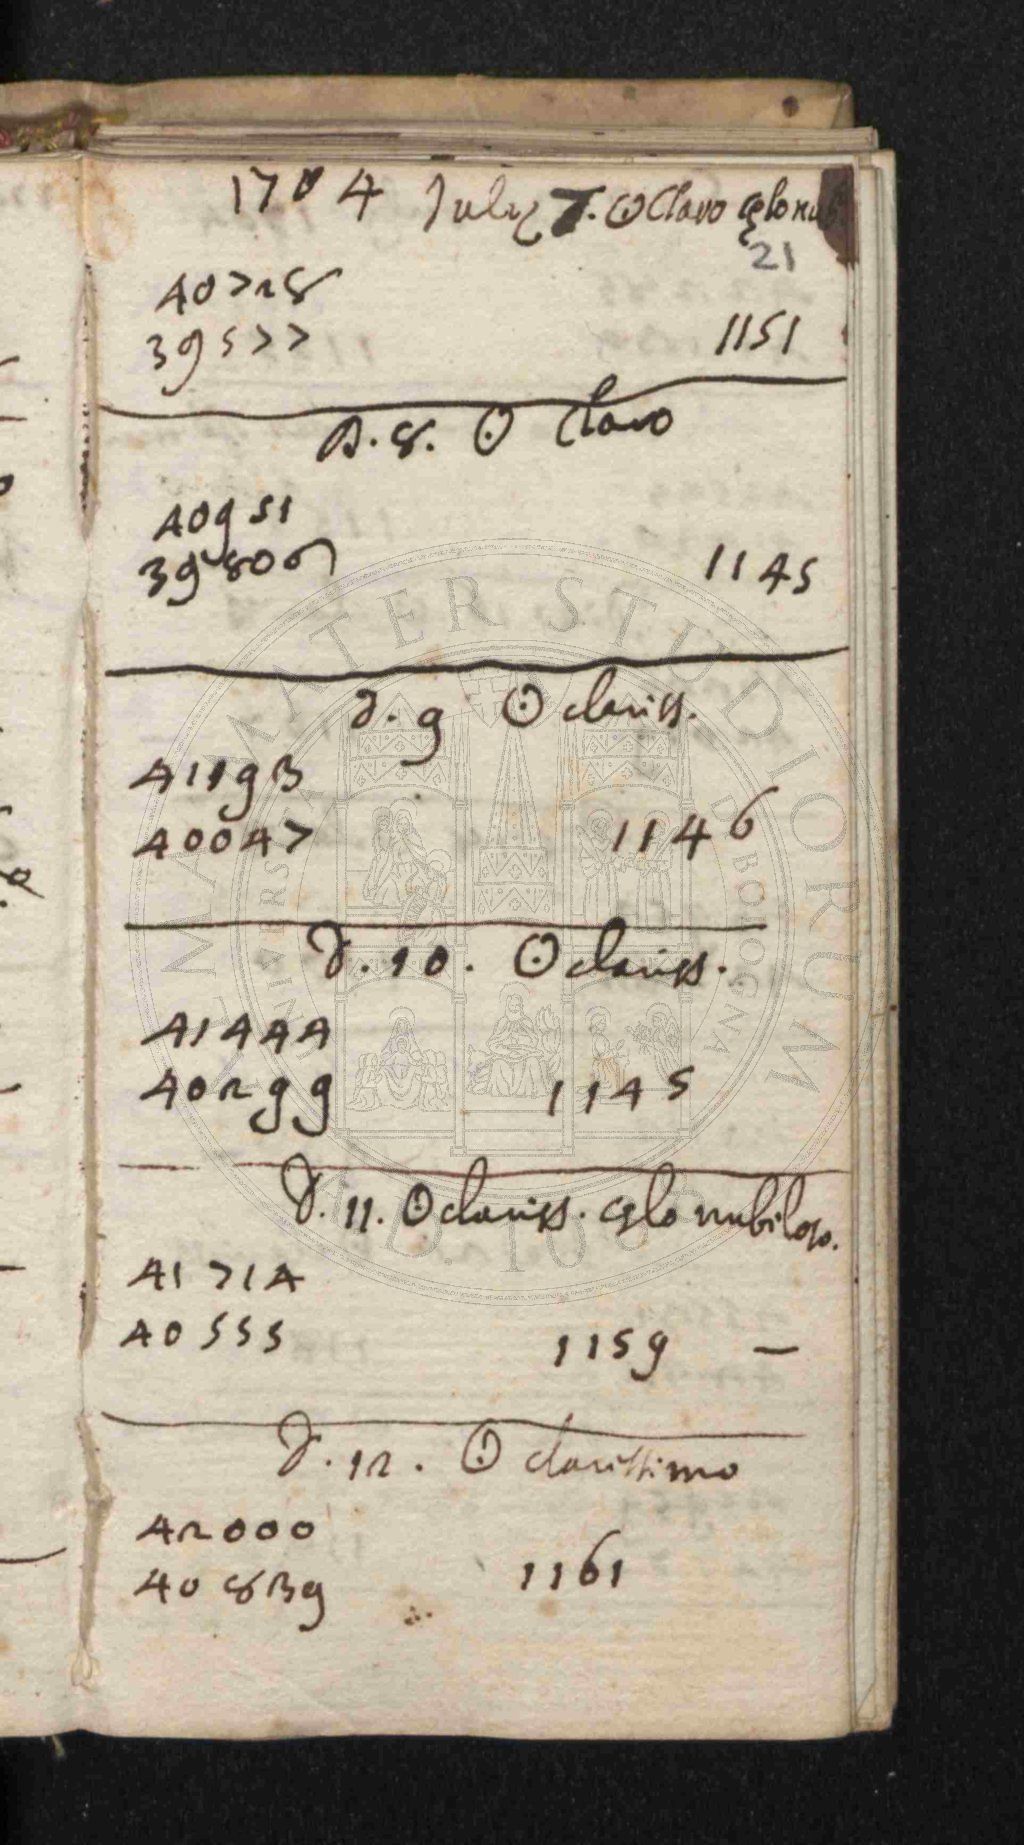 1704 July 7. ☉ Claro cęlo nub
21
40728
39577 1151
D. 8. ☉ Claro
40951
39806 1145
D. 9 ☉ clariss.
41193
40047 1146
D. 10. ☉ clariss.
41444
40299 1145
D. 11. ☉ clariss. cęlo nubiloso.
41714
40555 1159 —
D. 12. ☉ clarissimo
42000
40839 1161
ALMA MATER STUDIORUM
UNIVERSITÀ DI BOLOGNA
A.D. 1088